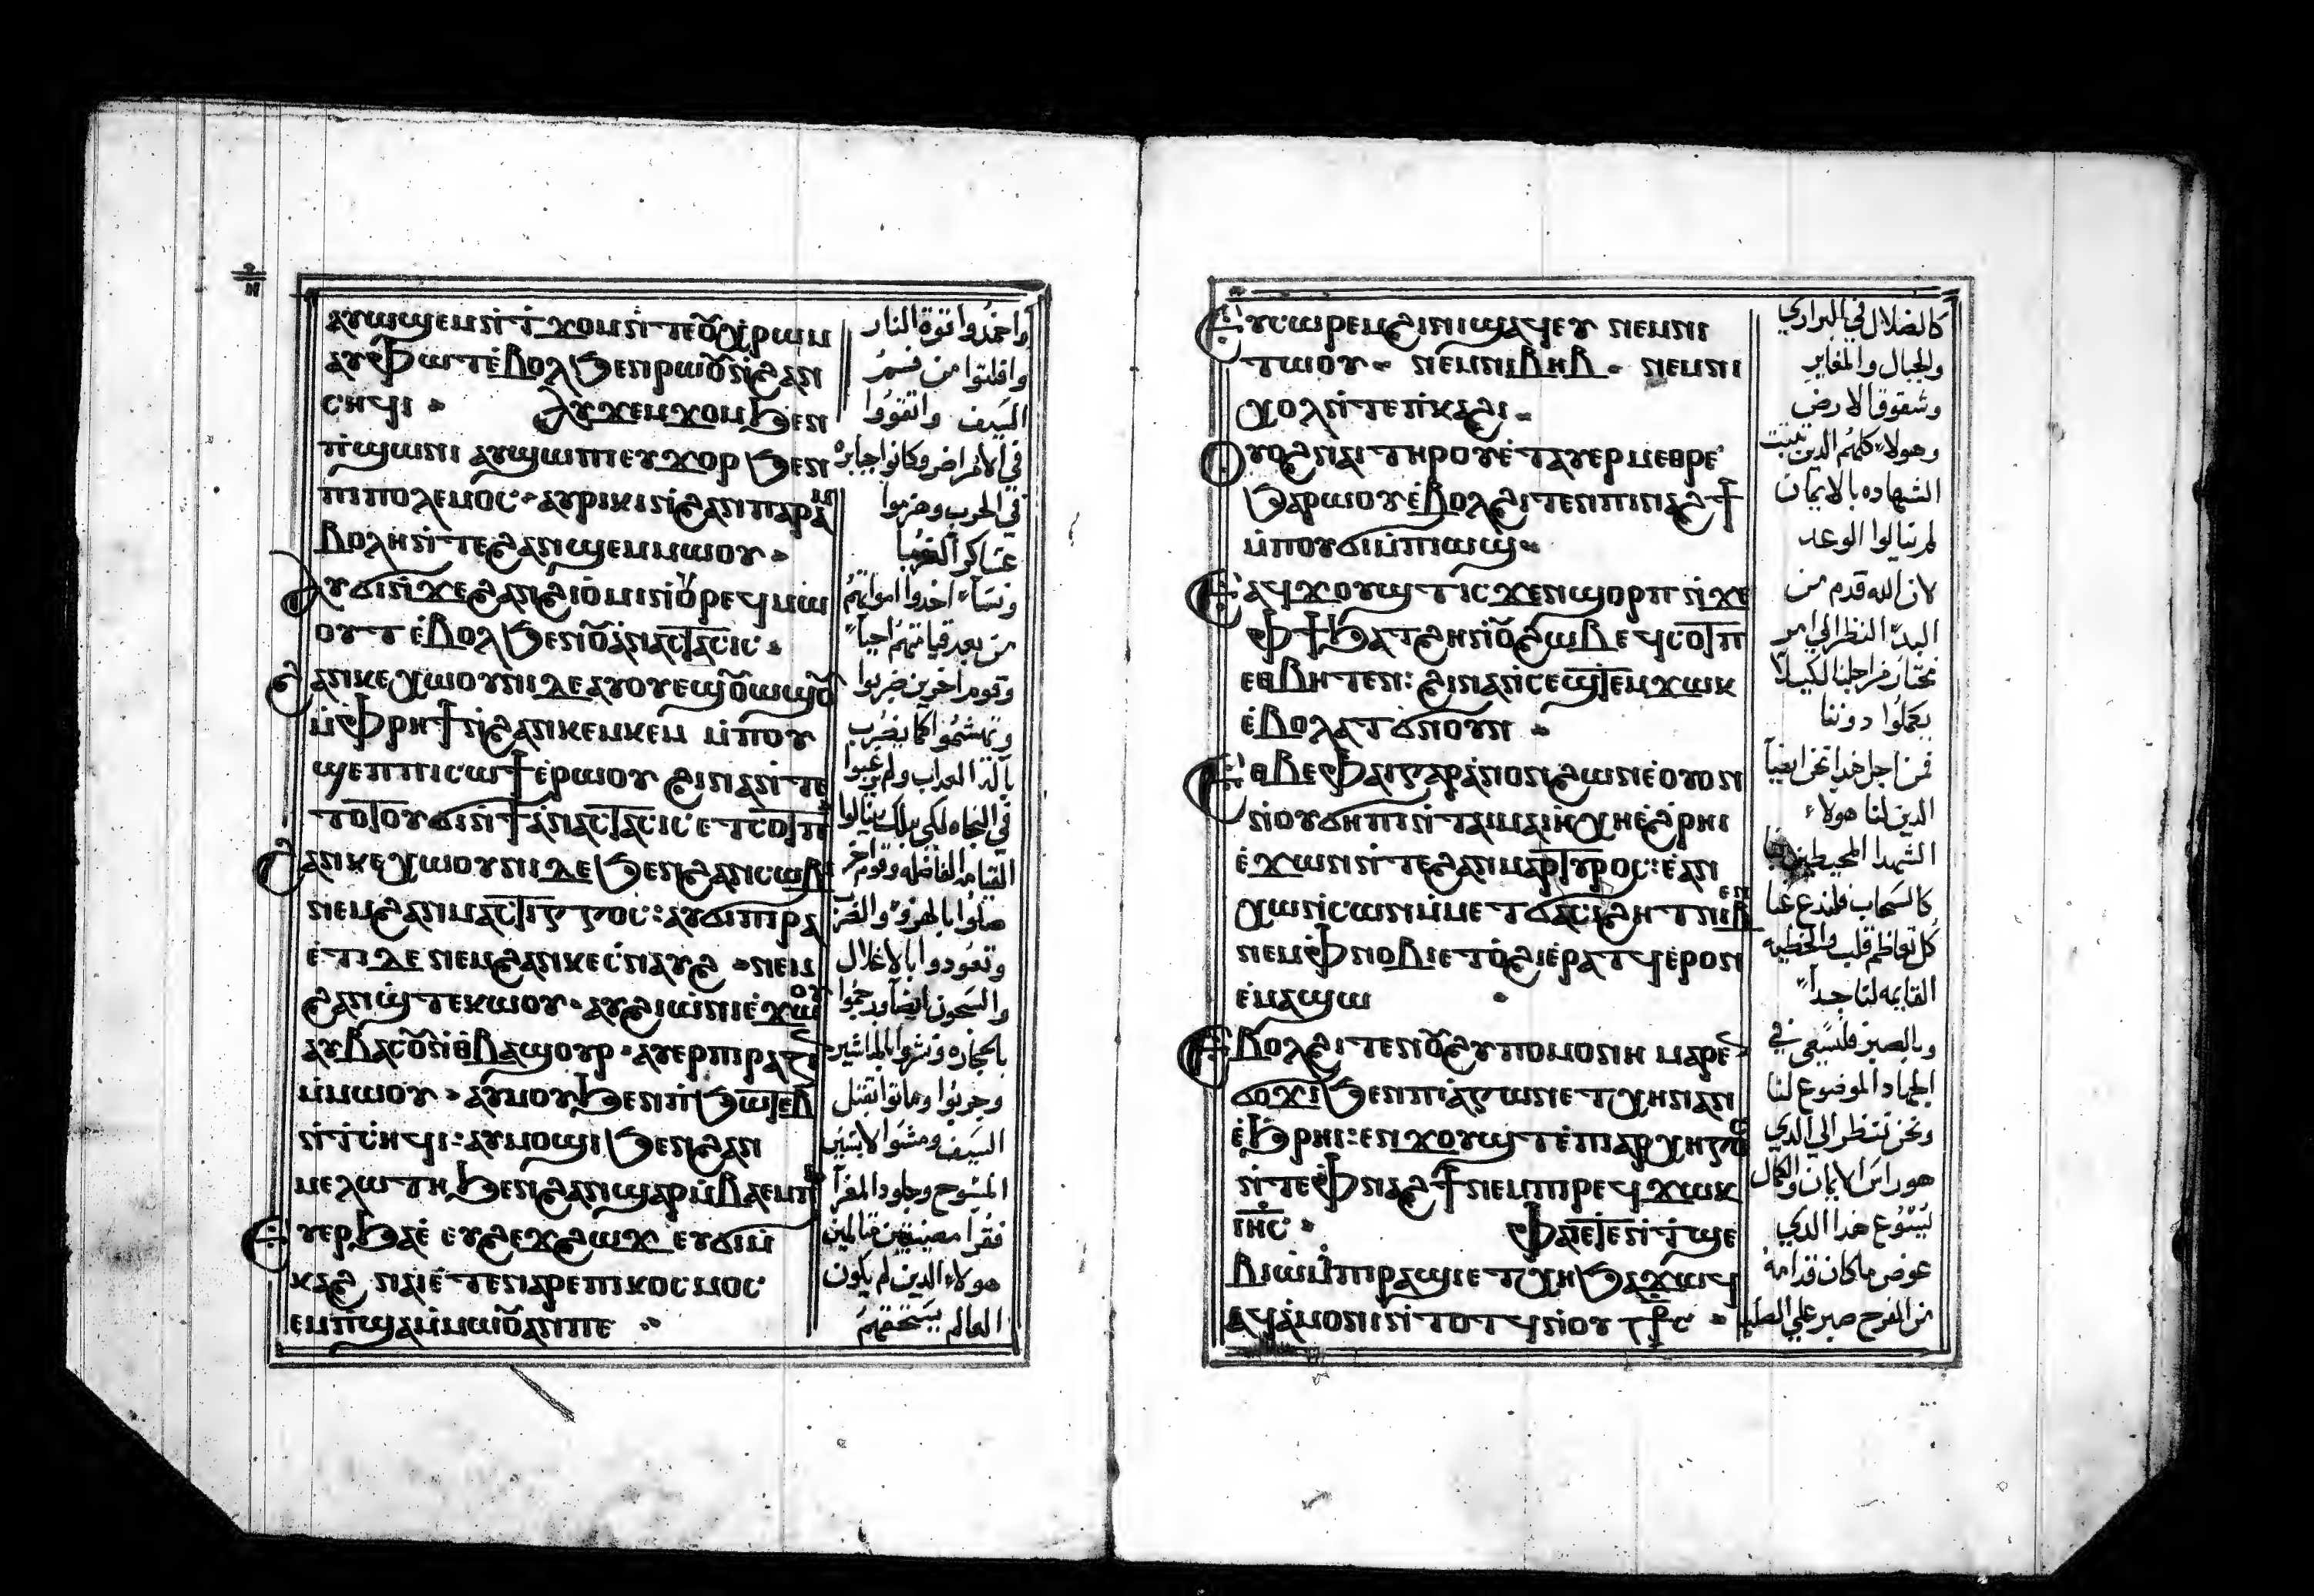 ⲁⲩⲱϣⲉⲙ ⲛ̀ϯϫⲟⲙ ⲛ̀ⲧⲉ ⲟⲩⲭ̀ⲣⲱⲙ
ⲁⲩⲫⲱⲧ ⲉ̀ⲃⲟⲗ ϧⲉⲛ ⲣⲱⲟⲩ ⲛ̀ϩⲁⲛ
ⲥⲏϥⲓ ⲁⲩϫⲉⲙϫⲟⲙ ϧⲉⲛ
ⲡ̀ϣⲱⲛⲓ ⲁⲩϣⲱⲡⲓ ⲉⲩϫⲟⲣ ϧⲉⲛ
ⲡⲓⲡⲟⲗⲉⲙⲟⲥ ⲁⲩⲣⲓⲕⲓ ⲛ̀ϩⲁⲛⲡⲁⲣⲉⲙ
ⲃⲟⲗⲏ ⲛ̀ⲧⲉ ϩⲁⲛϣⲉⲙⲙⲱⲟⲩ
ⲁⲩϭⲓ ⲛ̀ϫⲉ ϩⲁⲛϩⲓⲟ̀ⲙⲓ ⲛ̀ⲛⲟⲩⲣⲉϥⲙⲱ
ⲟⲩⲧ ⲉ̀ⲃⲟⲗ ϧⲉⲛ ⲟⲩⲁ̀ⲛⲁⲥⲧⲁⲥⲓⲥ
ϩⲁⲛⲕⲉⲭⲱⲟⲩⲛⲓ ⲇⲉ ⲁⲩⲟⲩⲉϣⲟⲩⲱϣⲟⲩ
ⲙ̀ⲫⲣⲏϯ ⲛ̀ϩⲁⲛⲕⲉⲙⲕⲉⲙ ⲙ̀ⲡⲟⲩ
ϣⲉⲡ ⲡⲓⲥⲱϯ ⲉ̀ⲣⲱⲟⲩ ϩⲓⲛⲁ ⲛ̀ⲧⲉ
ⲧⲟⲩⲟⲩϭⲓ ⲛ̀ϯⲁ̀ⲛⲁⲥⲧⲁⲥⲓⲥ ⲉⲧⲥⲟⲧⲡ
ϩⲁⲛⲕⲉⲭⲱⲟⲩⲛⲓ ⲇⲉ ϧⲉⲛ ϩⲁⲛⲥⲱⲃⲓ
ⲛⲉⲙ ϩⲁⲛⲙⲁⲥⲧⲓⲅⲅⲟⲥ ⲁⲩϭⲓⲡⲓⲣⲁ
ⲉ̀ⲧⲓ ⲇⲉ ⲛⲉⲙ ϩⲁⲛⲕⲉⲥ̀ⲛⲁⲩϩ ⲛⲉⲙ
ϩⲁⲛϣ̀ⲧⲉⲕⲱⲟⲩ ⲁⲩϩⲓⲱ̀ⲛⲓ ⲉ̀ϫⲱⲟⲩ
ⲁⲩⲃⲁⲥⲟⲩ ⲛ̀ⲑⲃⲁϣⲟⲩⲣ ⲁⲩⲉⲣⲡⲓⲣⲁⲍⲓⲛ
ⲙ̀ⲙⲱⲟⲩ ⲁⲩⲙⲟⲩ ϧⲉⲛ ⲡ̀ϧⲱⲧⲉⲃ
ⲛ̀ⲧⲥⲏϥⲓ ⲁⲩⲙⲟϣⲓ ϧⲉⲛ ϩⲁⲛ
ⲙⲉⲗⲱⲧⲏ ϧⲉⲛ ϩⲁⲛϣⲁⲣ ⲙ̀ⲃⲁⲉⲙⲡⲓ
ⲉⲩⲉⲣϧⲁⲉ̀ ⲉⲩϩⲉϫϩⲱϫ ⲉⲩϭⲓⲙ̀
ⲕⲁϩ ⲛⲁⲓ ⲉ̀ⲧⲉⲛⲁⲣⲉ ⲡⲓⲕⲟⲥⲙⲟⲥ
ⲉⲙⲡ̀ϣⲁ ⲙ̀ⲙⲱⲟⲩ ⲁⲛ ⲡⲉ
واخمدوا قوة النار
وافلتوا من فسم
السيف واتقووا
في الامراض وكانوا جبابره
في الحرب وهزموا
عساكر الغربا
ونساء اخدوا امواتهم
من بعد قيامتهم احيا
وقوم اخرين ضربوا
وتهشموا كما يضرب
بالة العداب ولم يرغبوا
في النجاه لكي ينالوا
القيامه الفاضله وقوم اخر
صلوا بالهزو والضرب
وتعودوا بالاغلال
والسجون ايضا ورجموا
بالحجاره ونشروا بالمناشير
وجربوا وماتوا بقتل
السيف ومشوا لابسين
المسوح وجلود المعزا
فقرا مضيقين متالمين
هولاء الدين لم يكون
العالم يستحقهم
ⲉⲩⲥⲱⲣⲉⲙ ϩⲓ ⲛⲓϣⲁϥⲉⲩ ⲛⲉⲙ ⲛⲓ
ⲧⲱⲟⲩ ⲛⲉⲙ ⲛⲓⲃⲏⲃ ⲛⲉⲙ ⲛⲓ
ⲭⲟⲗ ⲛ̀ⲧⲉ ⲡ̀ⲕⲁϩⲓ
ⲟⲩⲟϩ ⲛⲁⲓ ⲧⲏⲣⲟⲩ ⲉ̀ⲧⲁⲩⲉⲣⲙⲉⲑⲣⲉ
ϧⲁⲣⲱⲟⲩ ⲉ̀ⲃⲟⲗ ϩⲓⲧⲉⲛ ⲡⲓⲛⲁϩϯ
ⲙ̀ⲡⲟⲩϭⲓ ⲙ̀ⲡⲓⲱϣ
ⲉⲁϥϫⲟⲩϣⲧ ⲓⲥϫⲉⲛ ϣⲟⲣⲡ ⲛ̀ϫⲉ
ⲫϯ ϧⲁⲧϩⲏ ⲛ̀ⲟⲩϩⲱⲃ ⲉϥⲥⲟⲧⲡ
ⲉⲑⲃⲏⲧⲉⲛ ϩⲓⲛⲁ ⲛ̀ⲥⲉϣⲧⲉⲙϫⲱⲕ
ⲉ̀ⲃⲟⲗ ⲁⲧϭⲛⲟⲩⲛ
ⲉⲑⲃⲉⲫⲁⲓ ⲅⲁⲣ ⲁ̀ⲛⲟⲛ ϩⲱⲛ ⲉ̀ⲟⲩⲟⲛ
ⲛ̀ⲟⲩϭⲏⲡⲓ ⲛ̀ⲧⲁⲓⲙⲁⲓⲏ ⲭⲏ ⲉ̀ϩⲣⲏⲓ
ⲉ̀ϫⲱⲛ ⲛ̀ⲧⲉ ϩⲁⲛⲙⲁⲣⲧⲩⲣⲟⲥ ⲉ̀ⲁⲛ
ⲭⲱ ⲛ̀ⲥⲱⲛ ⲙ̀ⲙⲉⲧϭⲁⲥⲓϩⲏⲧ ⲛⲓⲃⲉⲛ
ⲛⲉⲙ ⲫⲛⲟⲃⲓ ⲉⲧⲟ̀ϩⲓ ⲉ̀ⲣⲁⲧϥ ⲉ̀ⲣⲟⲛ
ⲉ̀ⲙⲁϣⲱ
ⲉ̀ⲃⲟⲗ ϩⲓⲧⲉⲛ ⲟⲩϩⲩⲡⲟⲙⲟⲛⲏ ⲙⲁⲣⲉⲛ
ϭⲟϫⲓ ϧⲉⲛ ⲡⲓⲁ̀ⲅⲱⲛ ⲉⲧⲭⲏ ⲛⲁⲛ
ⲉ̀ϧⲣⲏⲓ ⲉⲛϫⲟⲩϣⲧ ⲉ̀ⲡⲓⲁⲣⲭⲏⲅⲟⲥ
ⲛ̀ⲧⲉ ⲫⲛⲁϩϯ ⲛⲉⲙ ⲡⲓⲣⲉϥϫⲱⲕ
ⲓⲏⲥ ⲫⲏⲉⲧⲉⲛ̀ⲧϣⲉ
ⲃⲓⲱ̀ ⲙ̀ⲡⲓⲣⲁϣⲓ ⲉⲧⲭⲏ ϧⲁϫⲱϥ
ⲁϥⲁ̀ⲙⲟⲛⲓ ⲛ̀ⲧⲟⲧϥ ⲛ̀ⲟⲩⲥⲧⲣⲥ
كالضلال في البراري
والجبال والمغاير
وشقوق الارض
وهولاء كلهم الدين تبينت
الشهاده بالايمان
لم ينالوا الوعد
لان الله قدم من
البدء النظر الى امر
نختار من اجلنا لكيلا
يكملوا دوننا
فمن اجل هدا نحن ايضا
الدين لنا هولاء
الشهدا المحيطين بنا
كالسحاب فلندع عنا
كل تعاظم قلب والخطيه
القايمه لنا جدا
وبالصبر فلنسعى في
الجهاد الموضوع لنا
ونحن ننظر الي الدي
هو راس الايمان والكمال
يسوع هدا الدي
عوض ما كان قدامه
من الفرح صبر على الصليب